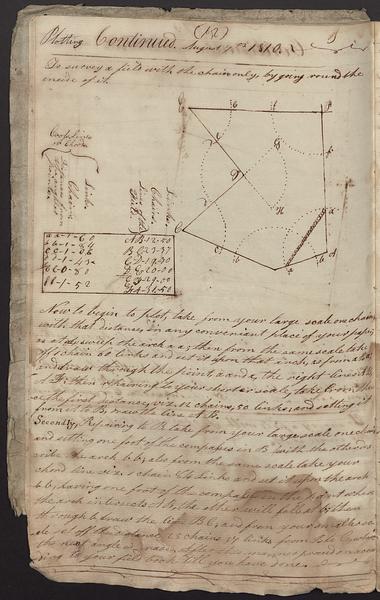 (12)
Plotting Continued. August 7th 1810.
To survey a field with the chain only, by going round the
inside of it.
Cross Lines
or Chords
Links
Chains
Links
Chains
aa-1-60
AB-12-50
bb-1-84
cc-1-06
CD-19-30
DE-20-00
ee-0-80
EF-29-00
ff-1-52
FA-31-50
E
F
D
H
C
B
A
Now to begin to plot, take from your large scale one chain
with that distance, in any convenient place of your paper
as at A, sweep the arch aa; then from the same scale take off
1 chain 60 links and set it upon that arch, as from a to a
and draw through the point a and a, the right lines
then repairing to your shorter scale, take from thence
the first distance, viz. 12 chains, 50 links; and setting it
from A to B, draw the line AB.
Secondly, Repairing to B take from your large scale one chain
and setting one foot of the compasses in B with the other
strike the arch bb; also from the same scale take your
chord line viz. 1 chain 84 Links and set it upon the arch
bb, having one foot of the compasses in the point where
the arch intersects AB, the other will fall at b; then
through b draw the line BC; and from your smaller scale
set off the distance 25 chains 37 links from
the next angle is made. After the same manner proceed according
to your field book till you have done.